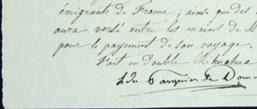 émigrants de France ; ainsi que des
aura versé entre les mains de M
pour le payement de son voyage.
Fait en Double Chihuahua